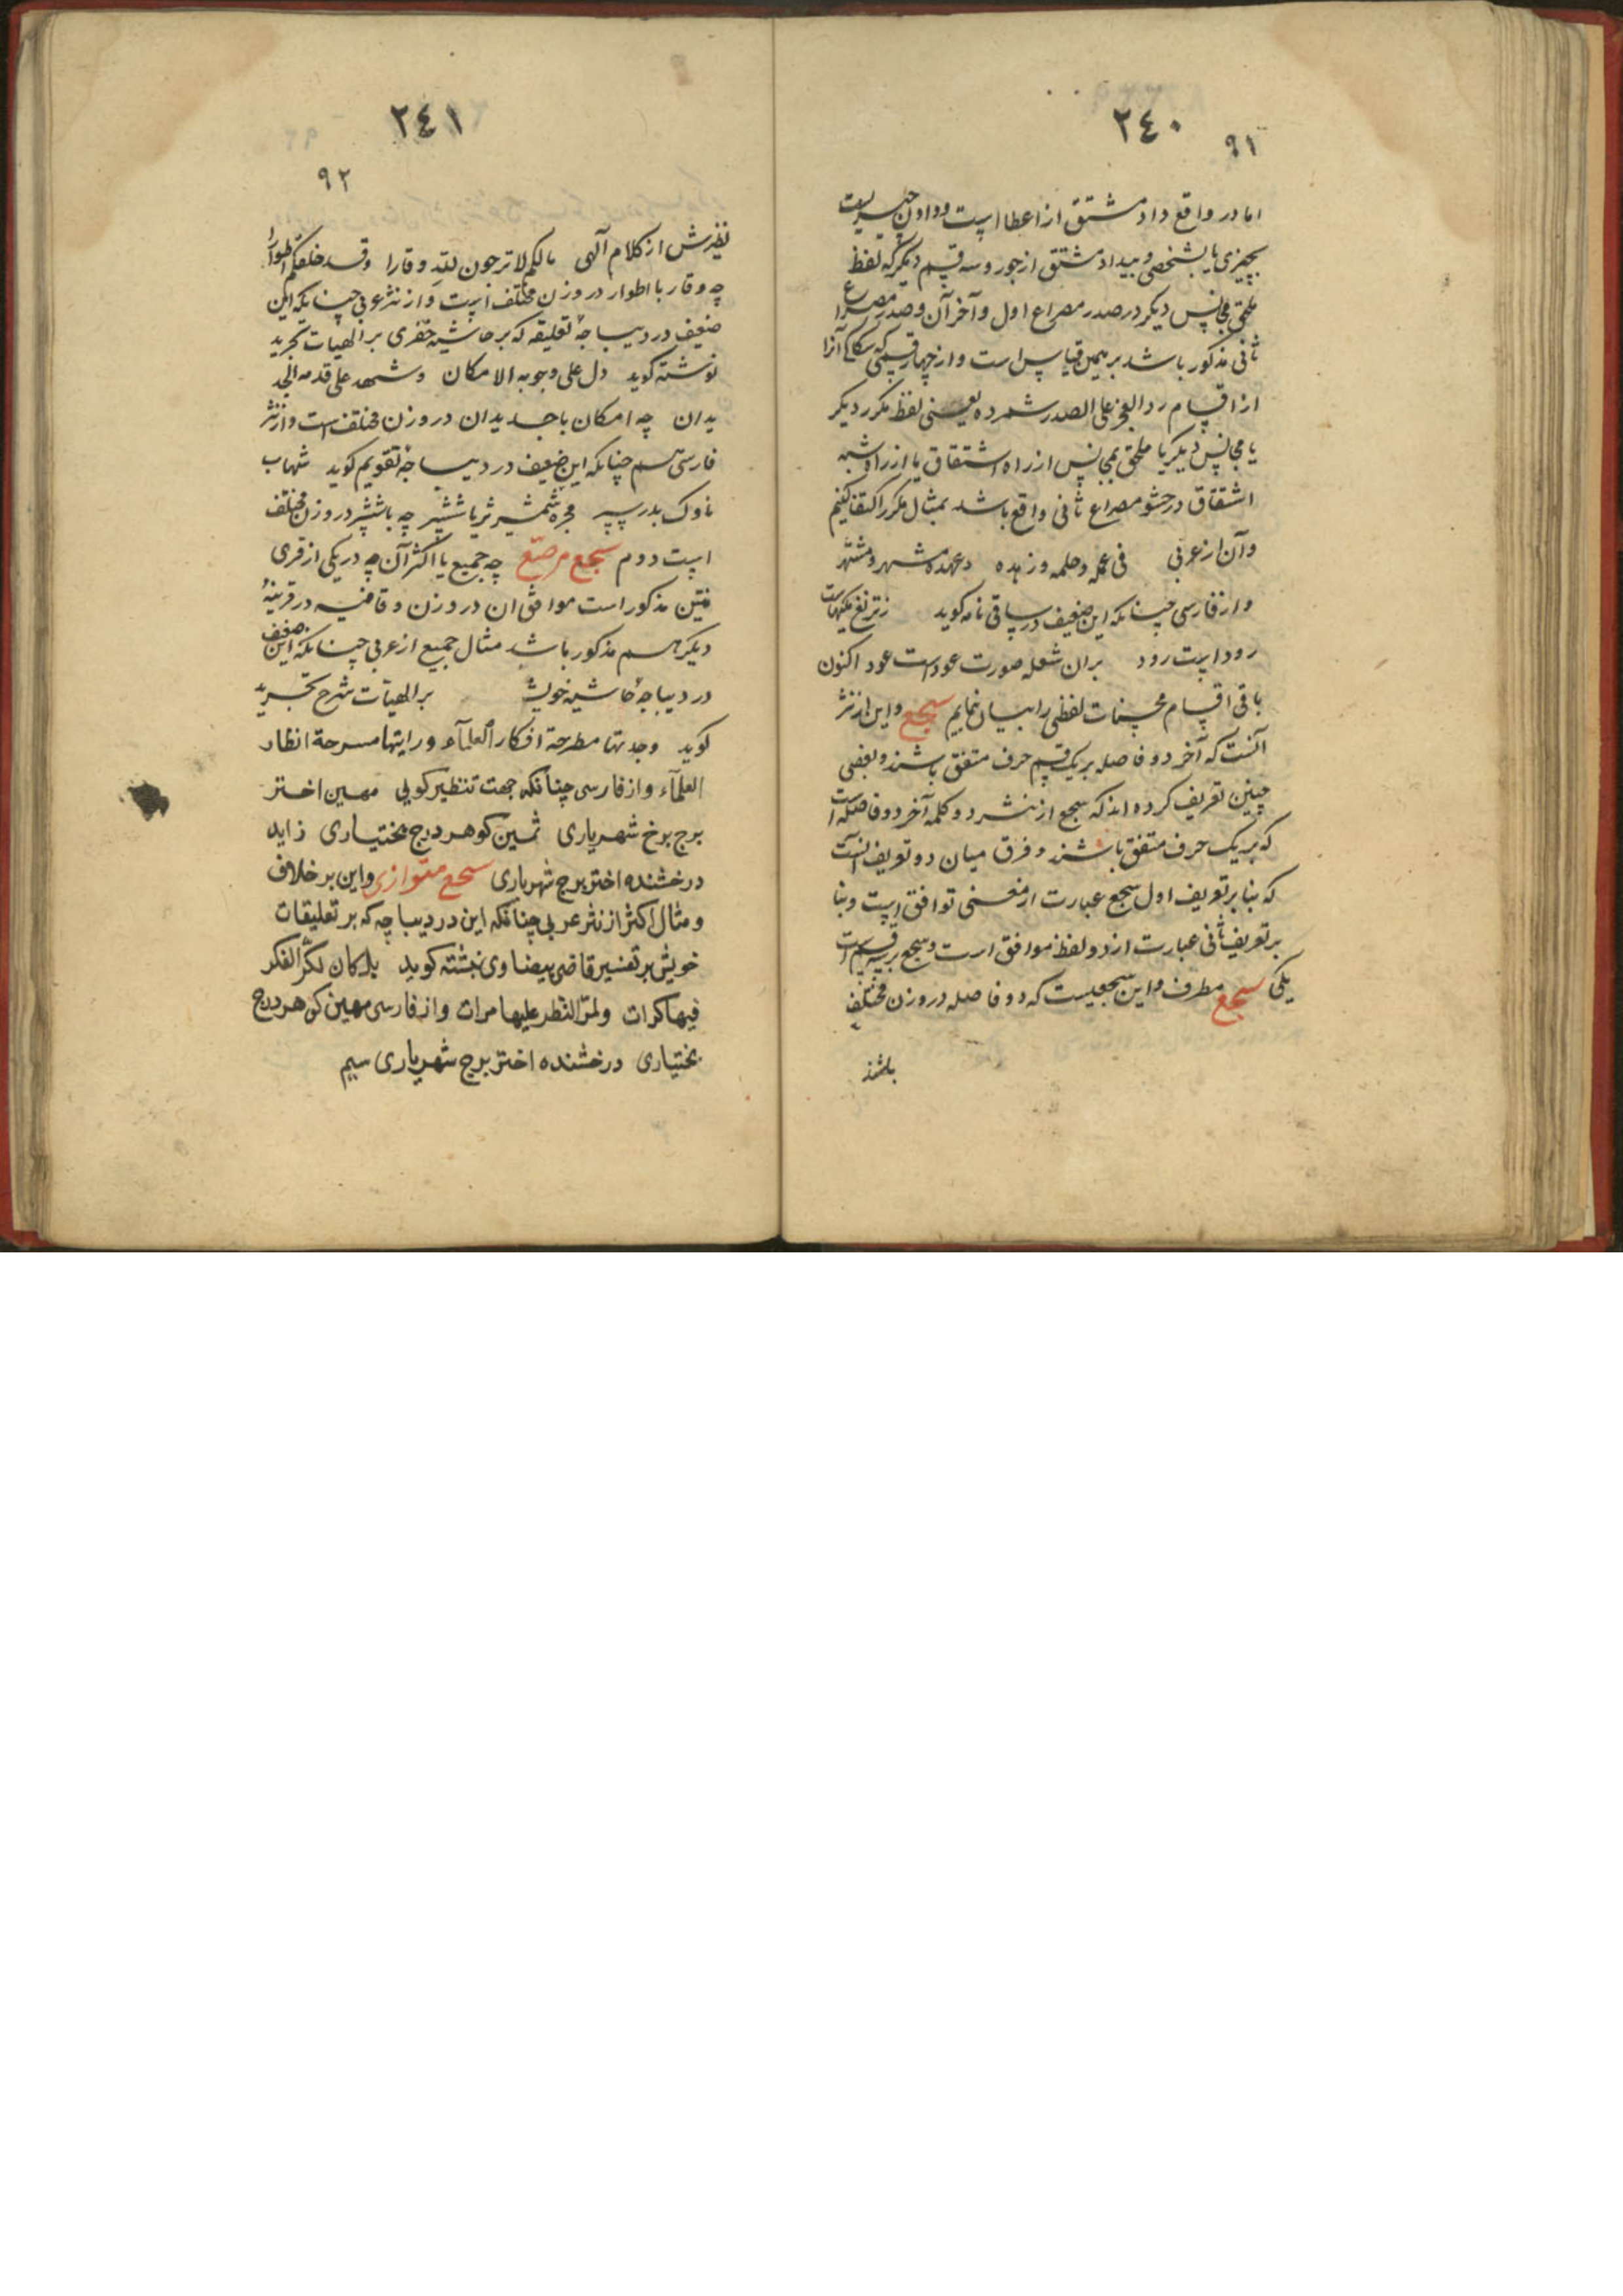 ٢٤٠
٩١
اما در واقع داد مشتق از اعطا است و دادن چیزیست
بچیزی یا بشخصی و بیداد مشتق از جور و سه قسم دیگر که لفظ
ملحق بمجانس دیگر در صدر مصراع اول و آخر آن و صدر مصراع
ثانی مذکور باشد بر همین قیاس است و از چهار قسمی که سکاکی آنرا
از اقسام رد العجز علی الصدر شمرده یعنی لفظ مکرر دیگر
یا مجانس دیگر یا ملحق بمجانس از راه اشتقاق یا از راه شبه
اشتقاق در حشو مصراع ثانی واقع باشد بمثال مکرر اکتفا کنیم
وآن از عربی فی علمه وحلمه وزهده وعهده مشهر و مشتهر
واز فارسی چنانکه این ضعیف در ساقی نامه گوید
رود است رود بران شعله صورت عود است عود اکنون
باقی اقسام محسنات لفظی را بیان نماییم سجع و این از نثر
آنست که آخر دو فاصله بر یک قسم حرف متفق باشند و بعضی
چنین تعریف کرده اند که سجع از نثر دو کلمه آخر دو فاصله است
که بر یک حرف متفق باشند و فرق میان دو تعریف آنست
که بنا بر تعریف اول سجع عبارت از معنی توافق است و بنا
بر تعریف ثانی عبارت از دو لفظ موافق است و سجع بر سه قسم است
یکی سجع مطرف و این سجعیست که دو فاصله در وزن مختلف
باشند
٢٤١
٩٢
نظیرش از کلام آلهی مالکم لا ترجون لله وقارا وقد خلقکم اطوارا
چه وقار با اطوار در وزن مختلف است و از نثر عربی چنانکه این
ضعیف در دیباجهٔ تعلیقه که بر حاشیه خفری بر الهیات تجرید
نوشته کوید دل علی وجوبه الامکان وشهد علی قدمه الجد
یدان چه امکان با جدیدان در وزن مختلف است و از نثر
فارسی هم چنانکه این ضعیف در دیباجهٔ تقویم کوید شهاب
ناوک بدر سپر مجره شمشیر ثریا ششپر چه با ششپر در وزن مختلف
است دوم سجع مرصّع چه جمیع یا اکثر آن چه در یکی از قری
نتین مذکور است موافق ان در وزن و قافیه در قرینهٔ
دیگر هم مذکور باشد مثال جمیع از عربی چنانکه این ضعیف
در دیباجهٔ حاشیه خویش بر الهیآت شرح تجرید
کوید وجدتها مطرحة افکار العلمآء ورایتها مسرحة انظار
العلمآء و از فارسی چنانکه جهت تنظیر کویی مهین اختر
برج برخ شهریاری ثمین کوهر درج بختیاری زاید
درخشنده اختر برج شهریاری سجع متوازی و این بر خلاف
و مثال اکثر از نثر عربی چنانکه این در دیباچه که بر تعلیقات
خویش بر تفسیر قاضی بیضاوی نبشته کوید بل کان لکرّ الفکر
فیها کرات ولمرّ النظر علیها مرات و از فارسی مهین کوهر درج
بختیاری درخشنده اختر برج شهریاری سیم